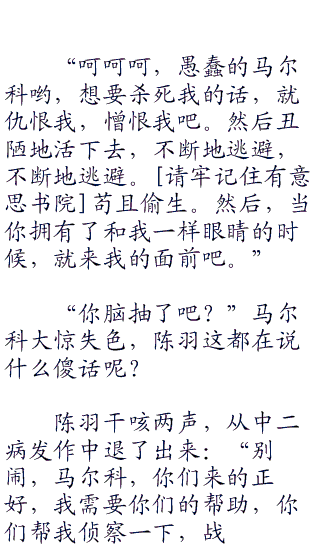 “呵呵呵，愚蠢的马尔
科哟，想要杀死我的话，就
仇恨我，憎恨我吧。然后丑
陋地活下去，不断地逃避，
不断地逃避。[请牢记住有意
思书院]苟且偷生。然后，当
你拥有了和我一样眼睛的时
候，就来我的面前吧。”
“你脑抽了吧？”马尔
科大惊失色，陈羽这都在说
什么傻话呢？
陈羽干咳两声，从中二
病发作中退了出来：“别
闹，马尔科，你们来的正
好，我需要你们的帮助，你
们帮我侦察一下，战